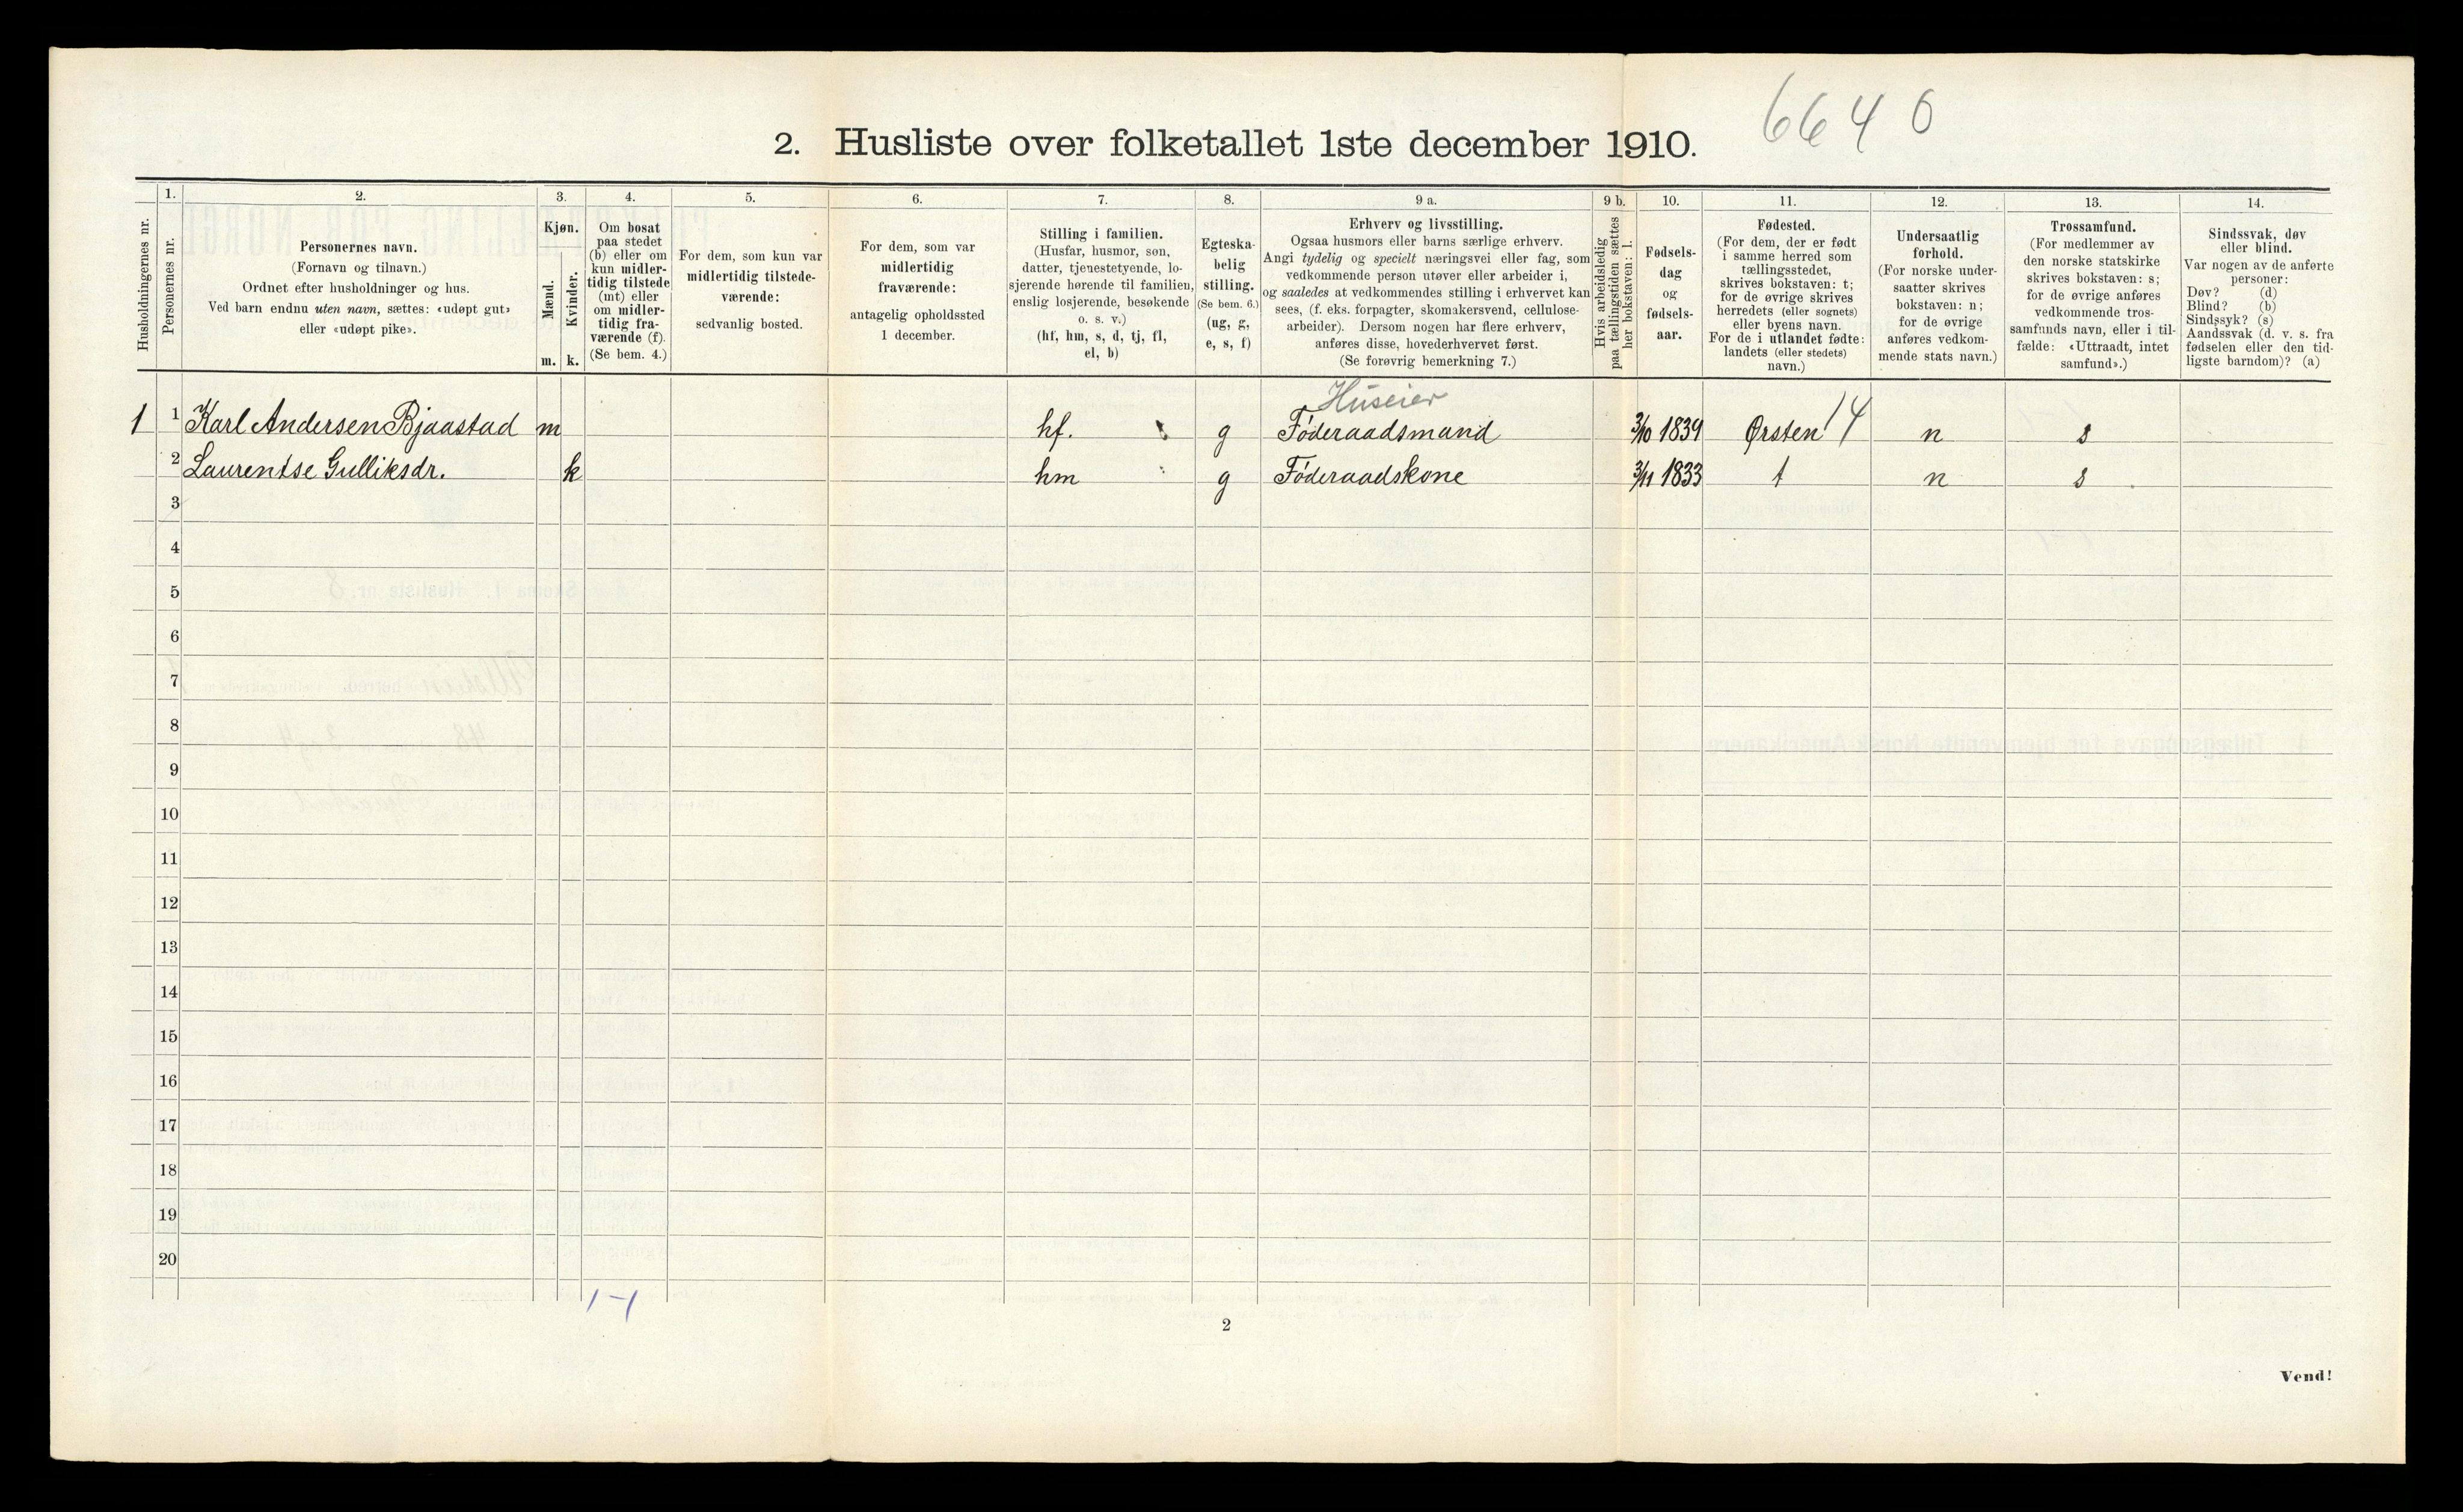 6640
2. Husliste over folketallet 1ste december 1910.
Husholdningernes nr.
1.
Personernes nr.
2.
Personernes navn.
(Fornavn og tilnavn.)
Ordnet efter husholdninger og hus.
Ved barn endnu uten navn, sættes: «udøpt gut»
eller «udøpt pike».
3.
Kjøn.
Mænd.
Kvinder.
m. k.
4.
Om bosat
paa stedet
(b) eller om
kun midler-
tidig tilstede
(mt) eller
om midler-
tidig fra-
værende (f).
(Se bem. 4.)
5.
For dem, som kun var
midlertidig tilstede-
værende:
sedvanlig bosted.
6.
For dem, som var
midlertidig
fraværende:
antagelig opholdssted
1 december.
7.
Stilling i familien.
(Husfar, husmor, søn,
datter, tjenestetyende, lo-
sjerende hørende til familien,
enslig losjerende, besøkende
o. s. v.)
(hf, hm, s, d, tj, fl,
el, b)
8.
Egteska-
belig
stilling.
(Se bem. 6.)
(ug, g,
e, s, f)
9 a.
Erhverv og livsstilling.
Ogsaa husmors eller barns særlige erhverv.
Angi tydelig og specielt næringsvei eller fag, som
vedkommende person utøver eller arbeider i,
og saaledes at vedkommendes stilling i erhvervet kan
sees, (f. eks. forpagter, skomakersvend, cellulose-
arbeider). Dersom nogen har flere erhverv,
anføres disse, hovederhvervet først.
(Se forøvrig bemerkning 7.)
9 b.
Hvis arbeidsledig
paa tællingstiden sættes
her bokstaven: l.
10.
Fødsels-
dag
og
fødsels-
aar.
11.
Fødested.
(For dem, der er født
i samme herred som
tællingsstedet,
skrives bokstaven: t;
for de øvrige skrives
herredets (eller sognets)
eller byens navn.
For de i utlandet fødte:
landets (eller stedets)
navn.)
12.
Undersaatlig
forhold.
(For norske under-
saatter skrives
bokstaven: n;
for de øvrige
anføres vedkom-
mende stats navn.)
13.
Trossamfund.
(For medlemmer av
den norske statskirke
skrives bokstaven: s;
for de øvrige anføres
vedkommende tros-
samfunds navn, eller i til-
fælde: «Uttraadt, intet
samfund».)
14.
Sindssvak, døv
eller blind.
Var nogen av de anførte
personer:
Døv? (d)
Blind? (b)
Sindssyk? (s)
Aandssvak (d. v. s. fra
fødselen eller den tid-
ligste barndom)? (a)
Huseier
1 1 Karl Andersen Bjaastad m hf. g Føderaadsmand 3/10 1839 Ørsten 14 n s
2 Laurentse Gulliksdr. k hm g Føderaadskone 3/11 1833 t n s
3
4
5
6
7
8
9
10
11
12
13
14
15
16
17
18
19
20
1-1
2
Vend!